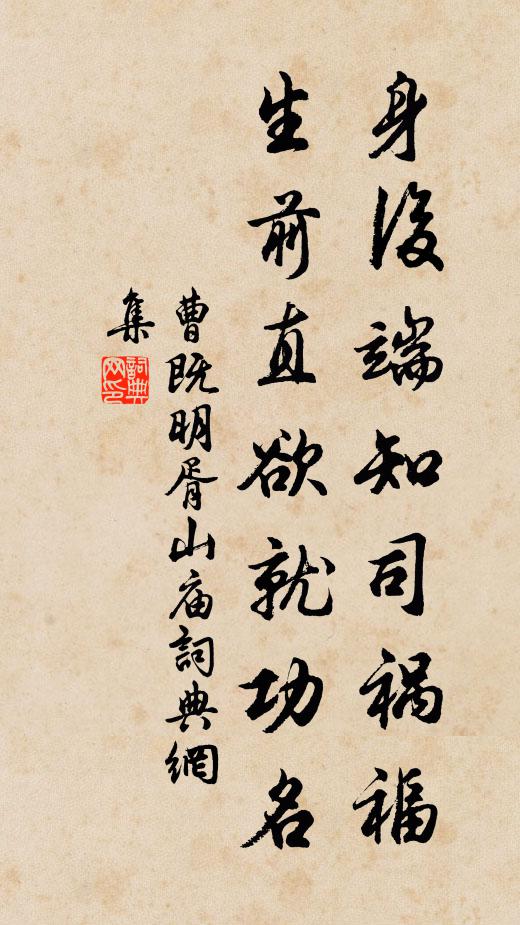 身後端知司祸福
生前直欲就功名
曹既明胥山庙詞典網
集
詞典
网印